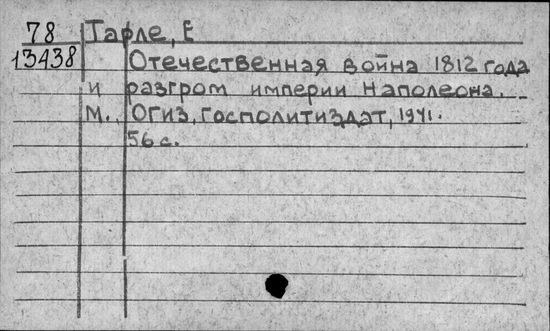 78 Тарле, Е
13438 Отечественная война 1812 года
и разгром империи Наполеона.
М., Огиз, Госполитиздат, 1941.
56 с.